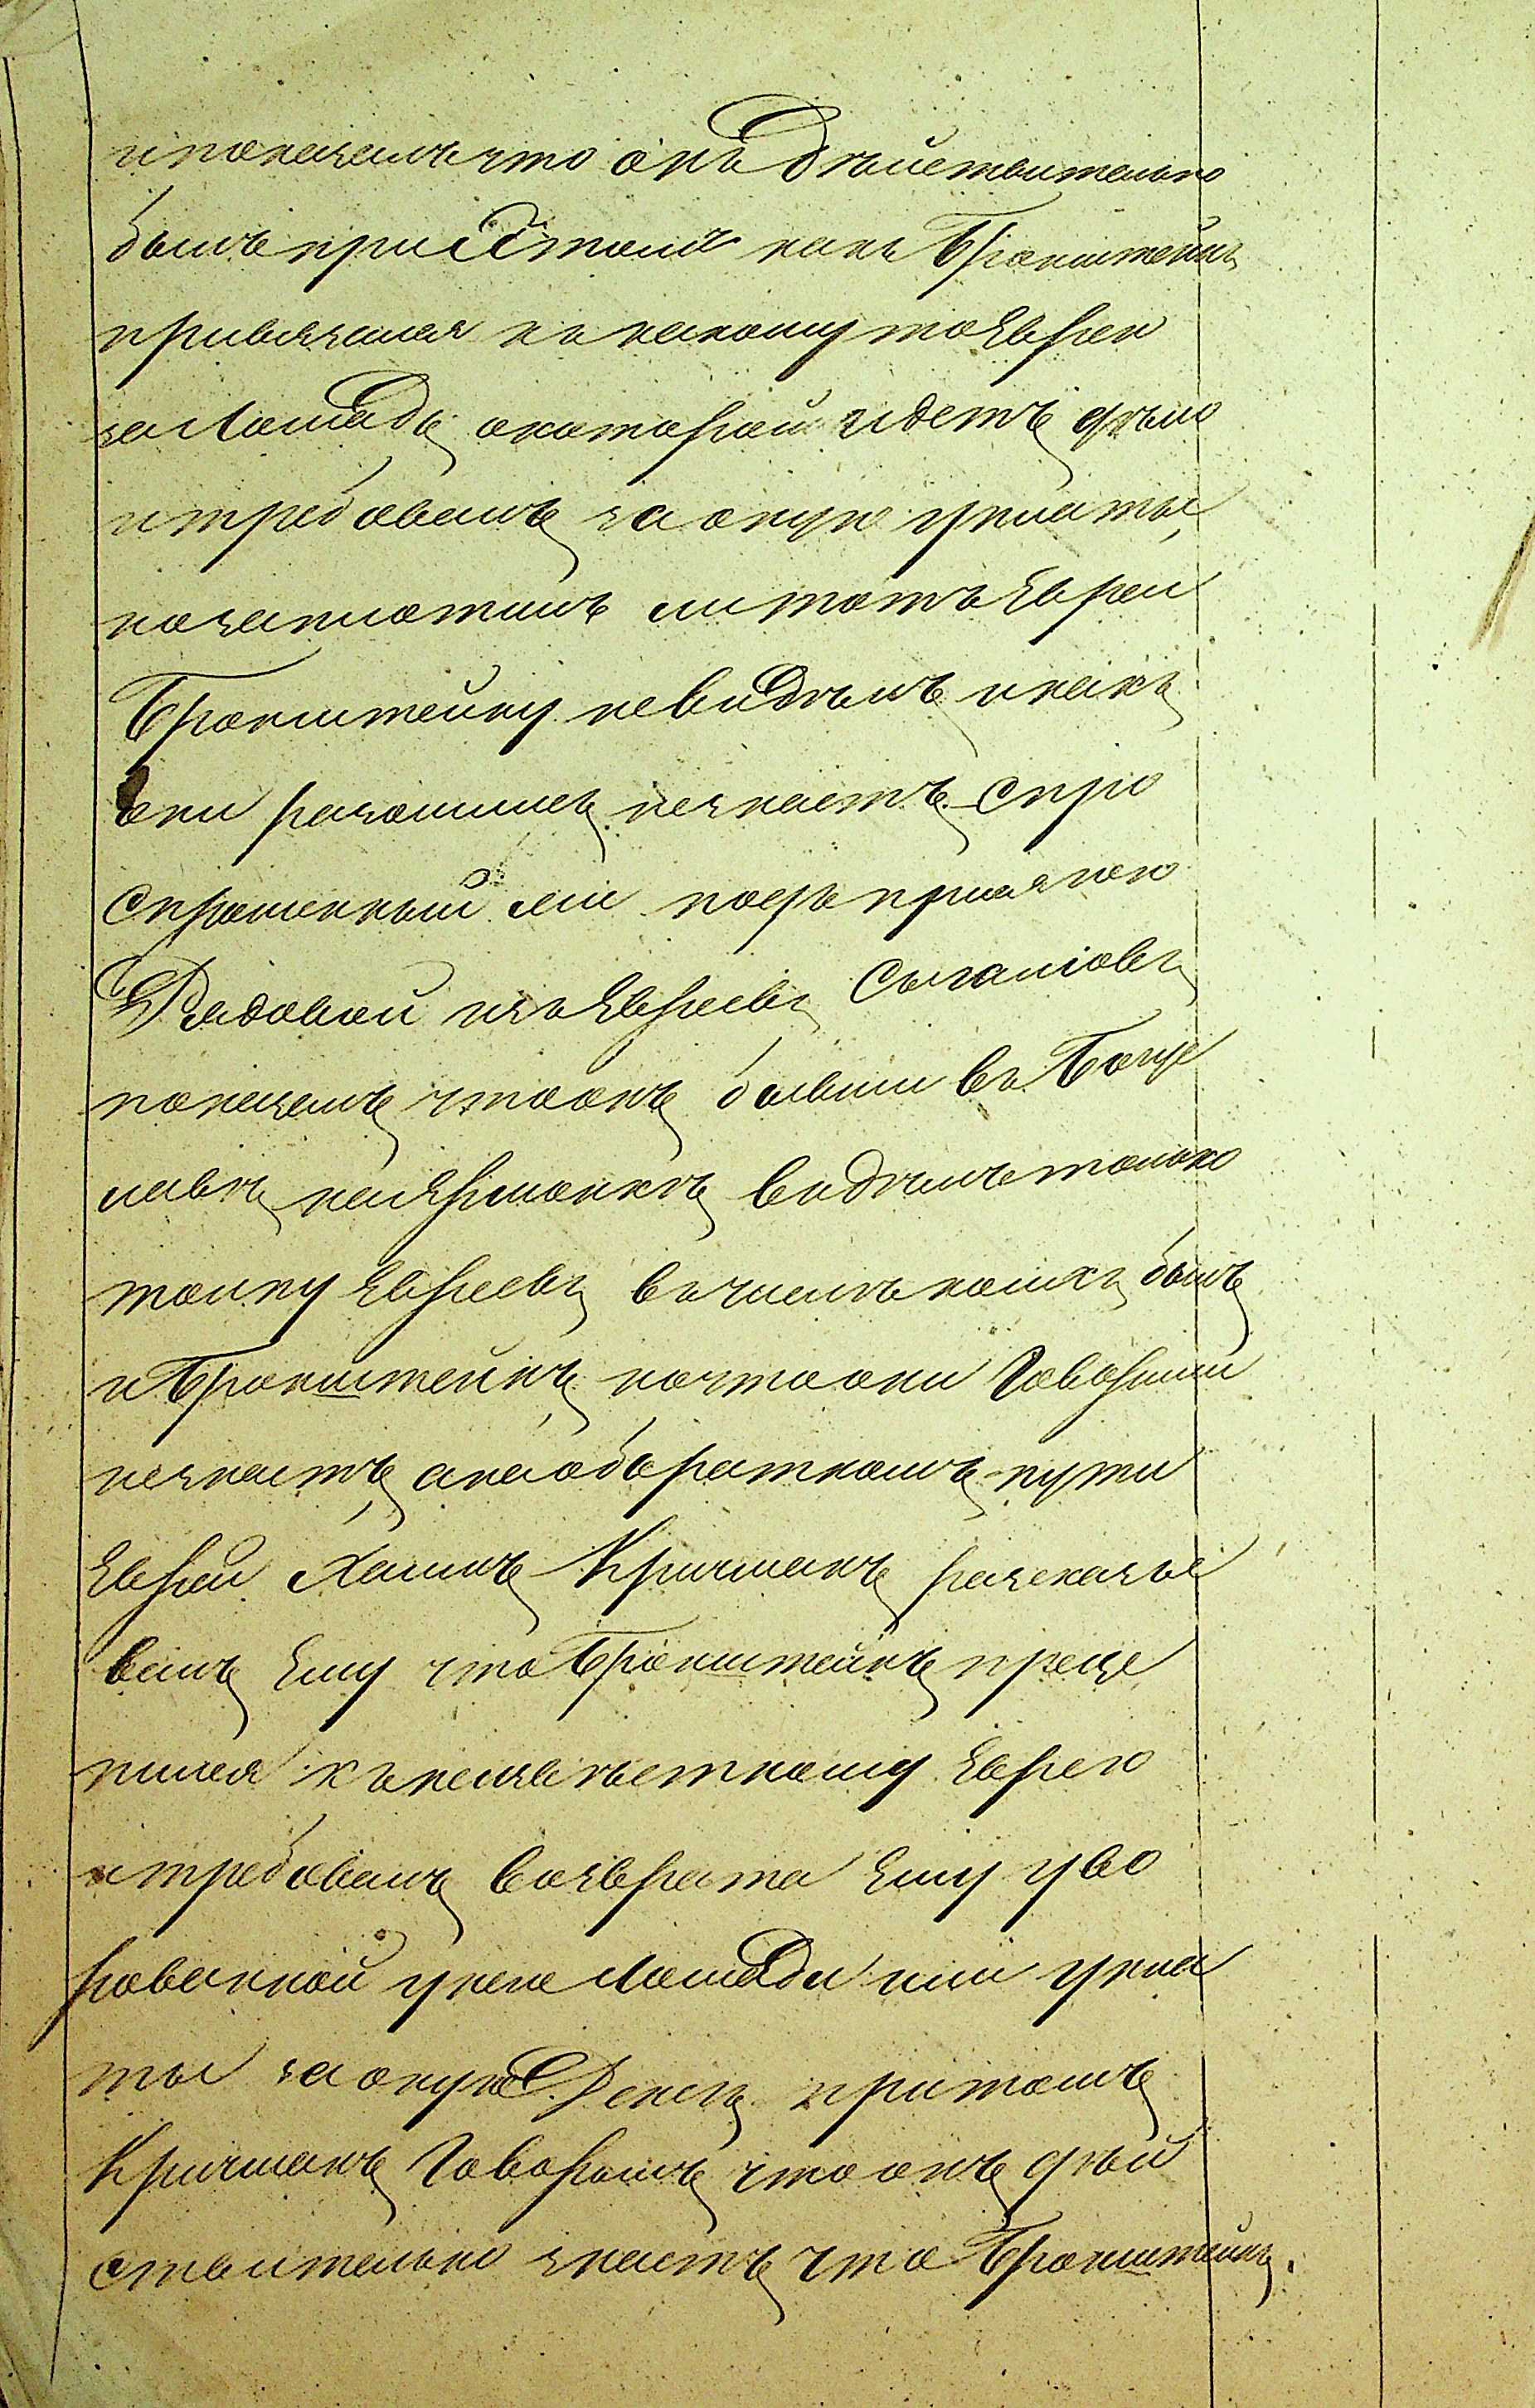 и показалъ что онъ Дѣйствительно
былъ при Етомъ какъ Бронштейнъ
привязался къ какому то Еврею
за Лошадь, о которой идетъ дѣло
и требовалъ за оную уплаты,
но заплатилъ ли тотъ Еврей
Бронштейну не видѣлъ, и какъ
они разошлись, незнаетъ. Спро
Спрошенный мы подъ присягою
Рядовой изъ Евреевъ
показалъ что онъ бывши въ
лавѣ на Ярмонкѣ видѣлъ только
толпу Евреевъ въ числѣ коихъ былъ
и Бронштейнъ но что они Говорили
незнаетъ, а на обьратномъ пути
Еврей Хаимъ Кричманъ разсказы
валъ Ему что Бронштейнъ прице
пился къ неизвѣстному Еврею
и требовалъ возврата Ему уво
рованной у него Лошади или упла
ты за оную Денегъ, при томъ
Кричманъ Говорилъ что онъ дѣй
ствительно знаетъ что Бронштейнъ.